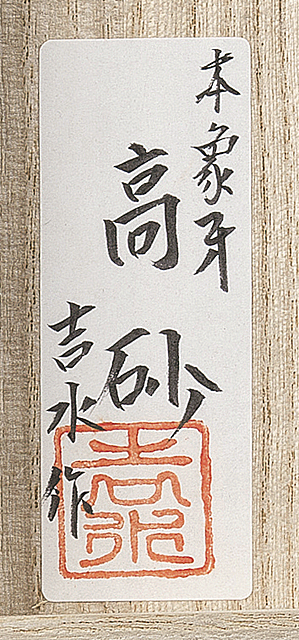 本象牙
高砂
吉水作
吉水